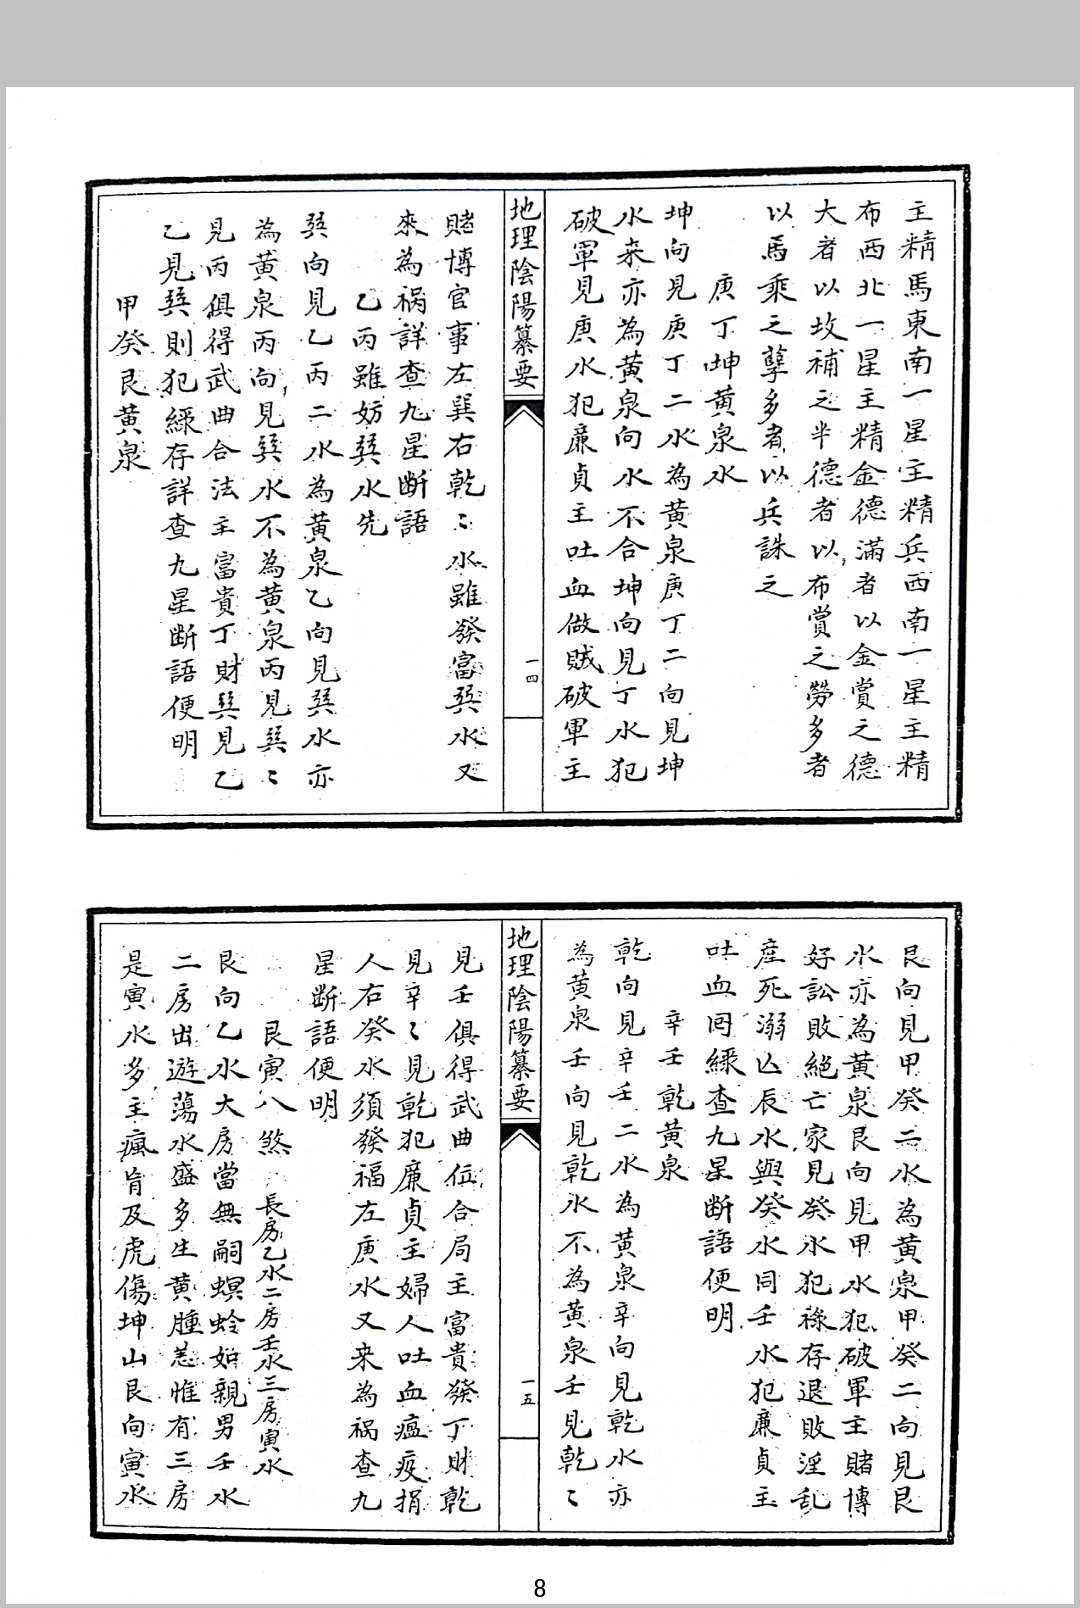 主精馬東南一星主精兵西南一星主精
布西北一星主精金德滿者以金賞之德
大者以坟補之半德者以布賞之勞多者
以馬乘之孽多者以兵誅之
庚丁坤黄泉水
坤向見庚丁二水為黄泉庚丁二向見坤
水来亦為黄泉向水不合坤向見丁水犯
破軍見庚水犯廉貞主吐血做賊破軍主
地理陰陽纂要
一四
賭博官事左巽右乾〻水雖發富巽水又
來為禍詳查九星断語
乙丙雖妨巽水先
巽向見乙丙二水為黄泉乙向見巽水亦
為黄泉丙向見巽水不為黄泉丙見巽〻
見丙俱得武曲合法主富貴丁財巽見乙
乙見巽則犯綠存詳查九星断語便明
甲癸艮黄泉
艮向見甲癸二水為黄泉甲癸二向見艮
水亦為黄泉艮向見甲水犯破軍主賭博
好訟敗絕亡家見癸水犯祿存退敗淫乱
産死溺亾辰水與癸水同壬水犯廉貞主
吐血囘綠查九星断語便明
辛壬乾黄泉
乾向見辛壬二水為黄泉辛向見乾水亦
為黄泉壬向見乾水不為黄泉壬見乾〻
地理陰陽纂要
一五
見壬俱得武曲位合局主富貴發丁财乾
見辛〻見乾犯廉貞主婦人吐血瘟疫捐
人右癸水須發福左庚水又来為禍查九
星断語便明
艮寅八煞 長房乙水二房壬水三房寅水
艮向乙水大房當無嗣螟蛉如親男壬水
二房出遊蕩水盛多生黄腫恙惟有三房
是寅水多主瘋旨及虎傷坤山艮向寅水
8